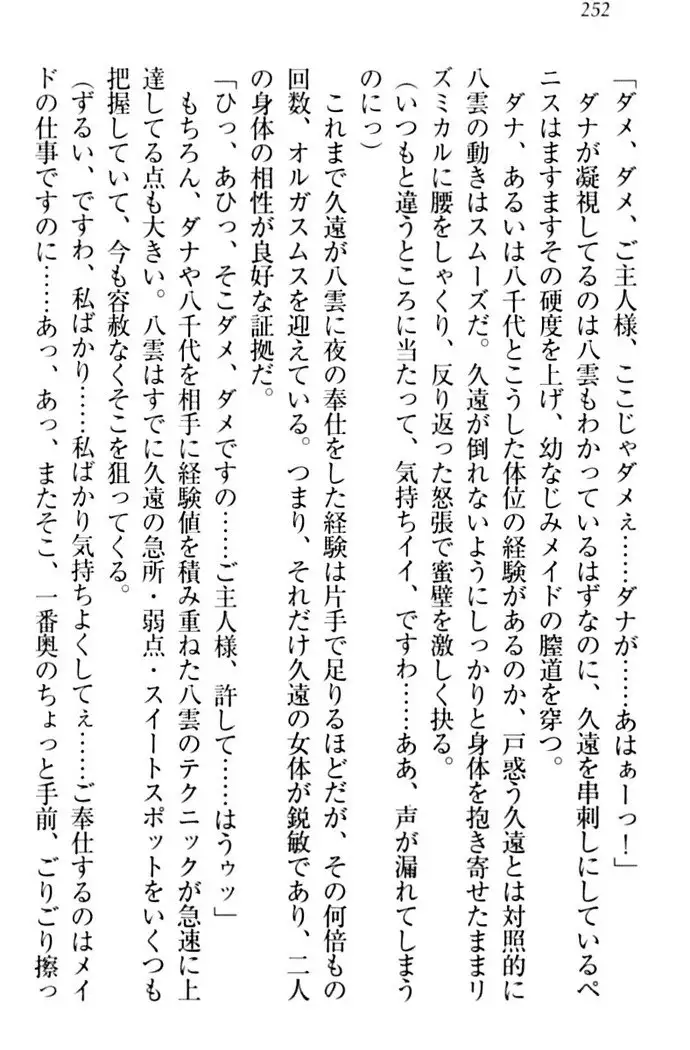 252
「ダメ、ダメ、ご主人様、ここじゃダメぇ……ダナが……あはぁーっ!」
ダナが凝視してるのは八雲もわかっているはずなのに、久遠を串刺しにしているペ
ニスはますますその硬度を上げ、幼なじみメイドの膣道を穿つ。
ダナ、あるいは八千代とこうした体位の経験があるのか、戸惑う久遠とは対照的に
八雲の動きはスムーズだ。久遠が倒れないようにしっかりと身体を抱き寄せたままリ
ズミカルに腰をしゃくり、反り返った怒張で蜜壁を激しく抉る。
(いつもと違うところに当たって、気持ちイイ、ですわ……ああ、声が漏れてしまう
のにっ)
これまで久遠が八雲に夜の奉仕をした経験は片手で足りるほどだが、その何倍もの
回数、オルガスムスを迎えている。つまり、それだけ久遠の女体が鋭敏であり、二人
の身体の相性が良好な証拠だ。
「ひっ、あひっ、そこダメ、ダメですの……ご主人様、許して……はうゥッ」
もちろん、ダナや八千代を相手に経験値を積み重ねた八雲のテクニックが急速に上
達してる点も大きい。八雲はすでに久遠の急所・弱点・スイートスポットをいくつも
把握していて、今も容赦なくそこを狙ってくる。
(ずるい、ですわ、私ばかり……私ばかり気持ちよくしてぇ……ご奉仕するのはメイ
ドの仕事ですのに……あっ、あっ、またそこ、一番奥のちょっと手前、ごりごり擦っ